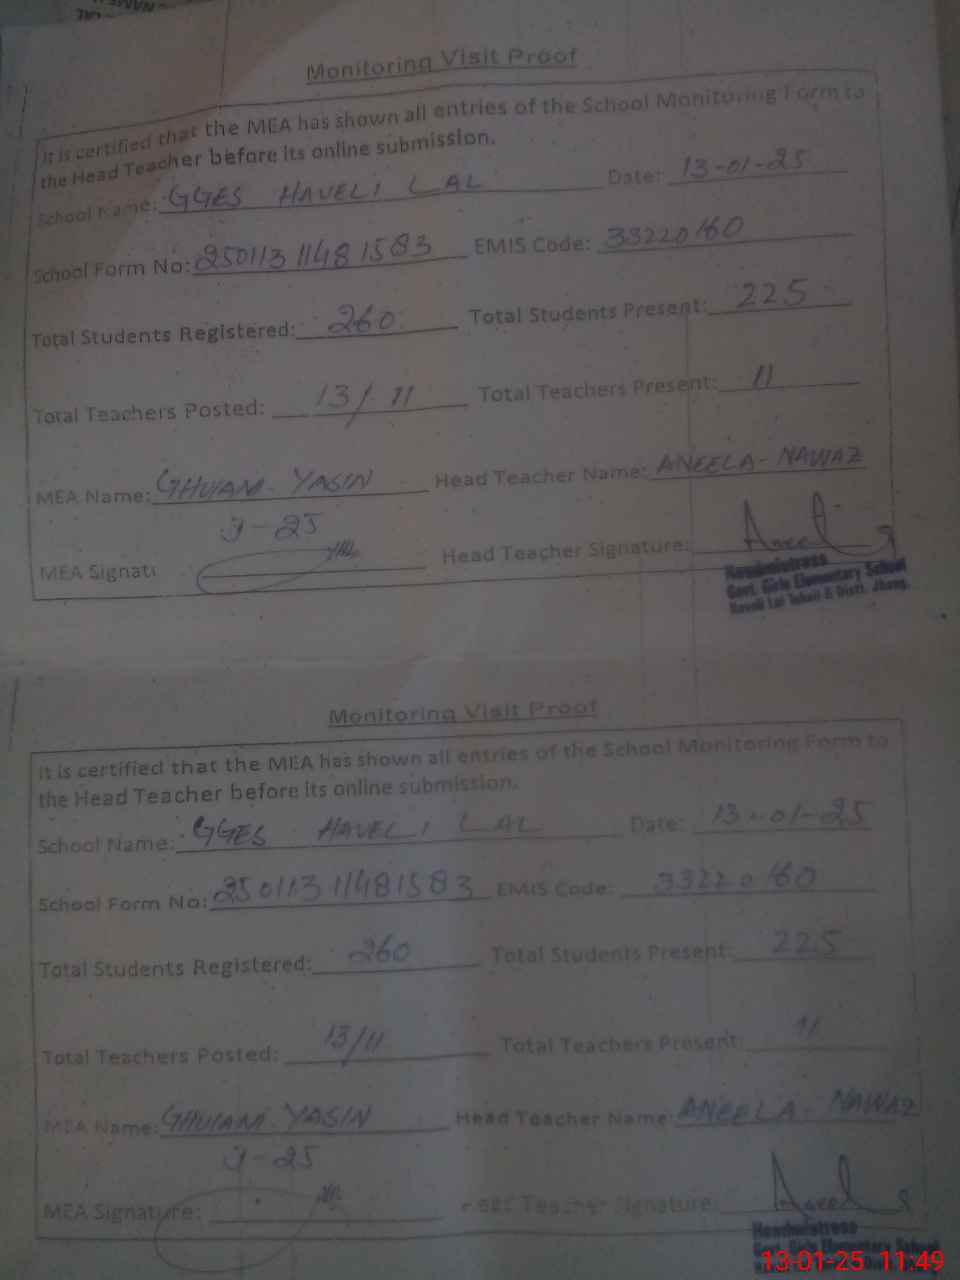 Monitoring Visit Proof
It is certified that the MEA has shown all entries of the School Monitoring Form to
the Head Teacher before its online submission.
School Name: GGES HAVELI LAL Date: 13-01-25
School Form No: 250113 1148 1583 EMIS Code: 33220160
Total Students Registered: 260 Total Students Present: 225
Total Teachers Posted: 13/11 Total Teachers Present: 11
MEA Name: GHULAM YASIN Head Teacher Name: ANEELA-NAWAZ
J-25
MEA Signatu Head Teacher Signature: Aneel
Headmistress
Govt. Girls Elementary School
Haveli Lal Tehsil & Distt. Jhang.
Monitoring Visit Proof
It is certified that the MEA has shown all entries of the School Monitoring Form to
the Head Teacher before its online submission.
School Name: GGES HAVELI LAL Date: 13-01-25
School Form No: 250113 11481583 EMIS Code: 33220160
Total Students Registered: 260 Total Students Present: 225
Total Teachers Posted: 13/11 Total Teachers Present: 11
MEA Name: GHULAM YASIN Head Teacher Name: ANEELA-NAWAZ
J-25
MEA Signature: Head Teacher Signature: Aneel
Headmistress
Govt. Girls Elementary School
13-01-25 11:49